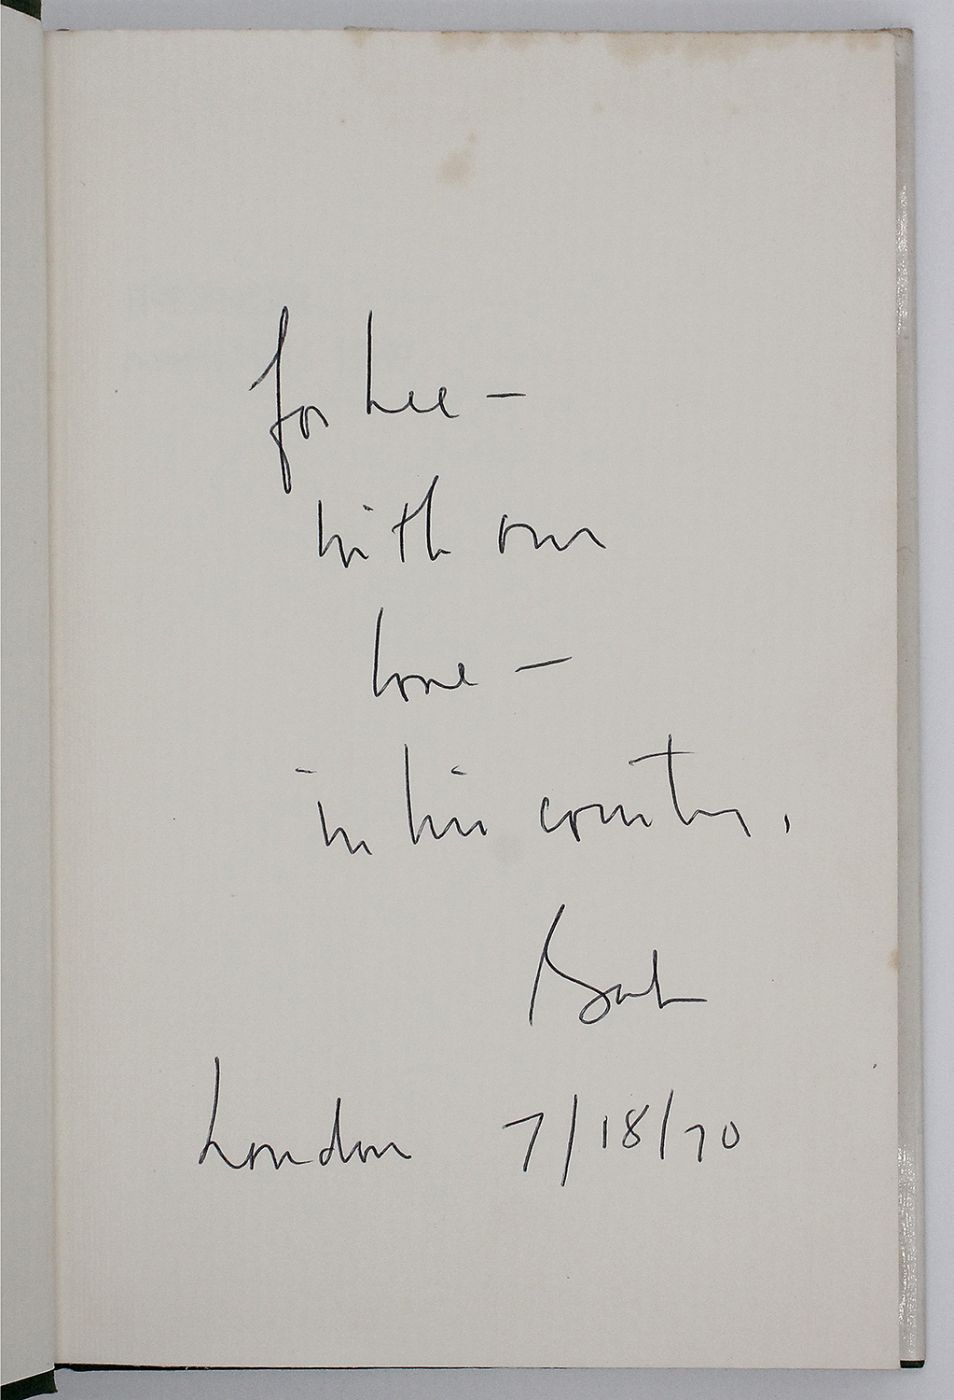 for Lee —
with our
love —
in his country,
Bob
London 7/18/70